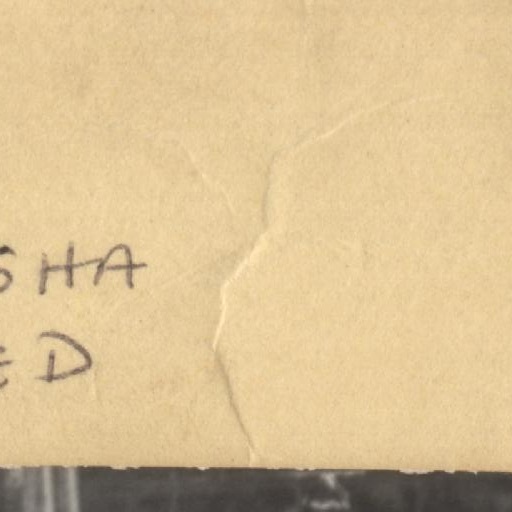 SHA
ED